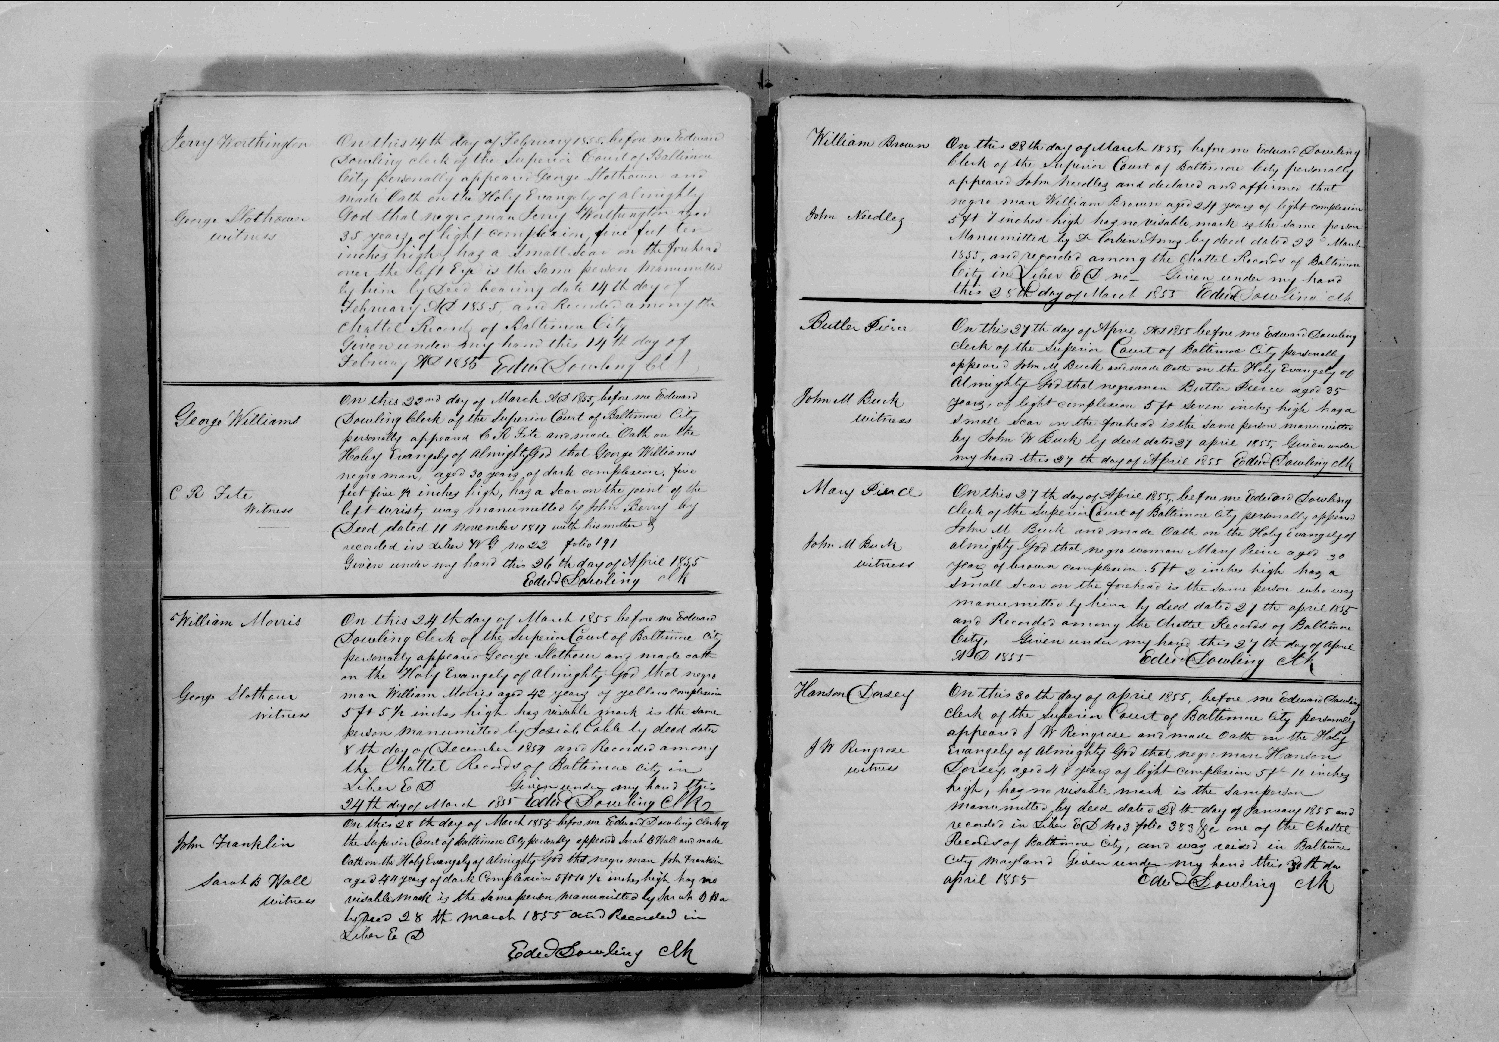 Jerry Worthington
On this 14th day of February 1855, before me Edward
Dowling clerk of the Superior Court of Baltimore
City personally appeared George Slothower and
made Oath on the Holy Evangely of almighty
George Slothower
God that negro man Jerry Worthington aged
witness
35 years, of light complexion, five feet ten
inches high, has a Small Scar on the forehead
over the left Eye is the Same person manumitted
by him by Deed bearing date 14th day of
February AD 1855, and Recorded among the
Chattel Records of Baltimore City
Given under my hand this 14th day of
February AD 1855 Edwd Dowling Clk
George Williams
On this 22nd day of March AD 1855, before me Edward
Dowling Clerk of the Superior Court of Baltimore City
personally appeard C R Fite and made Oath on the
Holy Evangely of Almighty God that George Williams
negro man, aged 39 years, of dark complexion, five
C R Fite
feet five ½ inches high, has a Scar on the joint of the
Witness
left wrist, was manumitted by John Berry by
Deed dated 11 November 1817 with his mother &
recorded in Liber W G no 22 folio 191
Given under my hand this 26th day of April 1855
Edwd Dowling Clk
William Morris
On this 24th day of March 1855 before me Edward
Dowling Clerk of the Superior Court of Baltimore City
personally appeared George Slothour and made oath
on the Holy Evangely of Almighty God that negro
George Slothour
man William Morris aged 42 years of yellow complexion
witness
5 ft 5½ inches high has visable mark is the same
person manumitted by Josiah Cobb by deed date
8th day of December and Recorded among
the Chattel Records of Baltimore City in
Liber E D Given under my hand this
24th day of March 1855 Edwd Dowling Clk
John Franklin
On this 28th day of March 1855 before me Edward Dowling Clerk of
the Superior Court of Baltimore City personaly appeard Sarah B Hall and made
Oath on the Holy Evangely of Almighty God that negro man John Franklin
Sarah B Hall
aged 44 years of dark Complexion 5 ft 10½ inches high has no
witness
visable mark is the same person manumitted by Sarah B Ha
by deed 28th march 1855 and Recorded in
Liber E D
Edwd Dowling Clk
William Brown
On this 28th day of March 1855, before me Edward Dowling
Clerk of the Superior Court of Baltimore City personally
appeared John Needles and declared and affirmed that
John Needles
negro man William Brown aged 24 years of light complexion
5 ft 7 inches high has no visable mark is the same person
Manumitted by by deed dated 22d March
1855, and recorded among the Chattel Records of Baltimore
City in Liber E D no — Given under my hand
this 28th day of March 1855 Edwd Dowling Clk
Butler Pierce
On this 27th day of April, AD 1855 before me Edward Dowling
Clerk of the Superior Court of Baltimore City personally
appeared John M Buck and made Oath on the Holy Evangely of
Almighty God that negro man Butler Pierce aged 35
John M Buck
years, of light complexion 5 ft seven inches high has a
witness
small scar on the forehead is the same person manumitted
by John W Buck by deed dated 27 april 1855, Given under
my hand this 27th day of April 1855 Edwd Dowling Clk
Mary Pierce
On this 27th day of April 1855, before me Edward Dowling
Clerk of the Superior Court of Baltimore City personaly appeard
John M Buck and made Oath on the Holy Evangely of
John M Buck
almighty God that negro woman Mary Pierce aged 30
witness
years of brown complexion 5 ft 2 inches high has a
small scar on the forehead is the same person who was
manumitted by him by deed dated 27th april 1855
and Recorded among the Chattel Records of Baltimore
City, Given under my hand this 27th day of April
AD 1855 Edwd Dowling Clk
Hanson Dorsey
On this 30th day of april 1855, before me Edward Dowling
Clerk of the Superior Court of Baltimore City personaly
appeared J W Ringrose and made Oath on the Holy
J W Ringrose
Evangely of Almighty God that, negro man Hanson
witness
Dorsey, aged years of light complexion 5 ft 11 inches
high, has no visable mark is the sam person
manumitted by deed dated 28th day of January 1855 and
recorded in Liber E D No 3 folio 383 &c one of the Chattel
Records of Baltimore City, and was raised in Baltimore
City Maryland Given under my hand this 30th day
april 1855 Edwd Dowling Clk